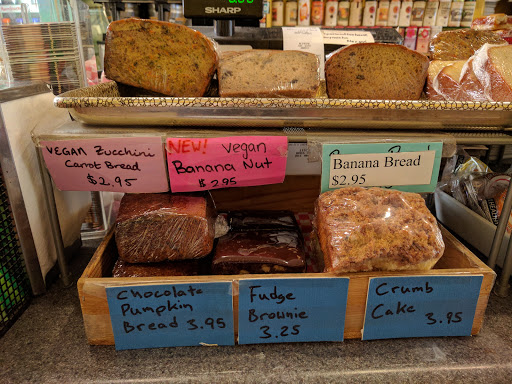 SHARP
VEGAN Zucchini
Carrot Bread
$2.95
NEW! Vegan
Banana Nut
$2.95
Banana Bread
$2.95
Chocolate
Pumpkin
Bread 3.95
Fudge
Brownie
3.25
Crumb
Cake 3.95